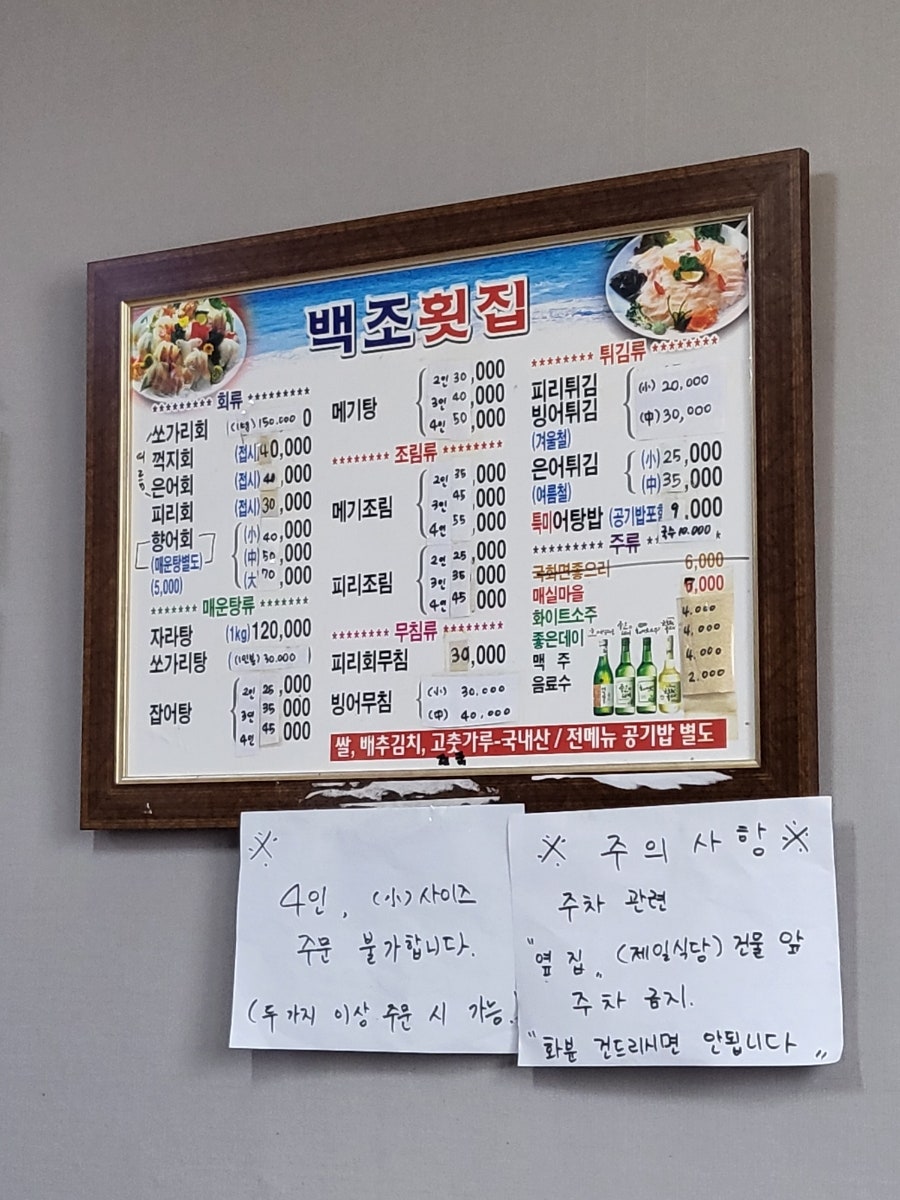 백조횟집
******** 회류 *********
여름
쏘가리회 (1kg) 150,000 0
꺽지회 (접시) 40,000
은어회 (접시) 40,000
피리회 (접시) 30,000
향어회 (小) 40,000
(매운탕별도) (中) 50,000
(5,000) (大) 70,000
******* 매운탕류 *******
자라탕 (1kg) 120,000
쏘가리탕 (1인분) 30.000
잡어탕
2인 25,000
3인 35 000
4인 45 000
메기탕
2인 30,000
3인 40,000
4인 50,000
******** 조림류 ********
메기조림
2인 35,000
3인 45,000
4인 55,000
피리조림
2인 25,000
3인 35,000
4인 45 000
******** 무침류 ********
피리회무침 30,000
빙어무침 (小) 30.000
(中) 40.000
******** 튀김류 ********
피리튀김 (小) 20,000
빙어튀김 (中) 30,000
(겨울철)
은어튀김 (小) 25,000
(여름철) (中) 35,000
특미어탕밥 (공기밥포함) 9,000
국수 10.000
******** 주류
국화면좋으리 6,000
매실마을 5,000
화이트소주 4.000
좋은데이 4,000
맥 주 4.000
음료수 2.000
쌀, 배추김치, 고춧가루-국내산 / 전메뉴 공기밥 별도
※
4인, (小)사이즈
주문 불가합니다.
(두가지 이상 주문 시 가능.)
※ 주의사항 ※
주차 관련
"옆집" (제일식당) 건물 앞
주차 금지.
"화분 건드리시면 안됩니다"